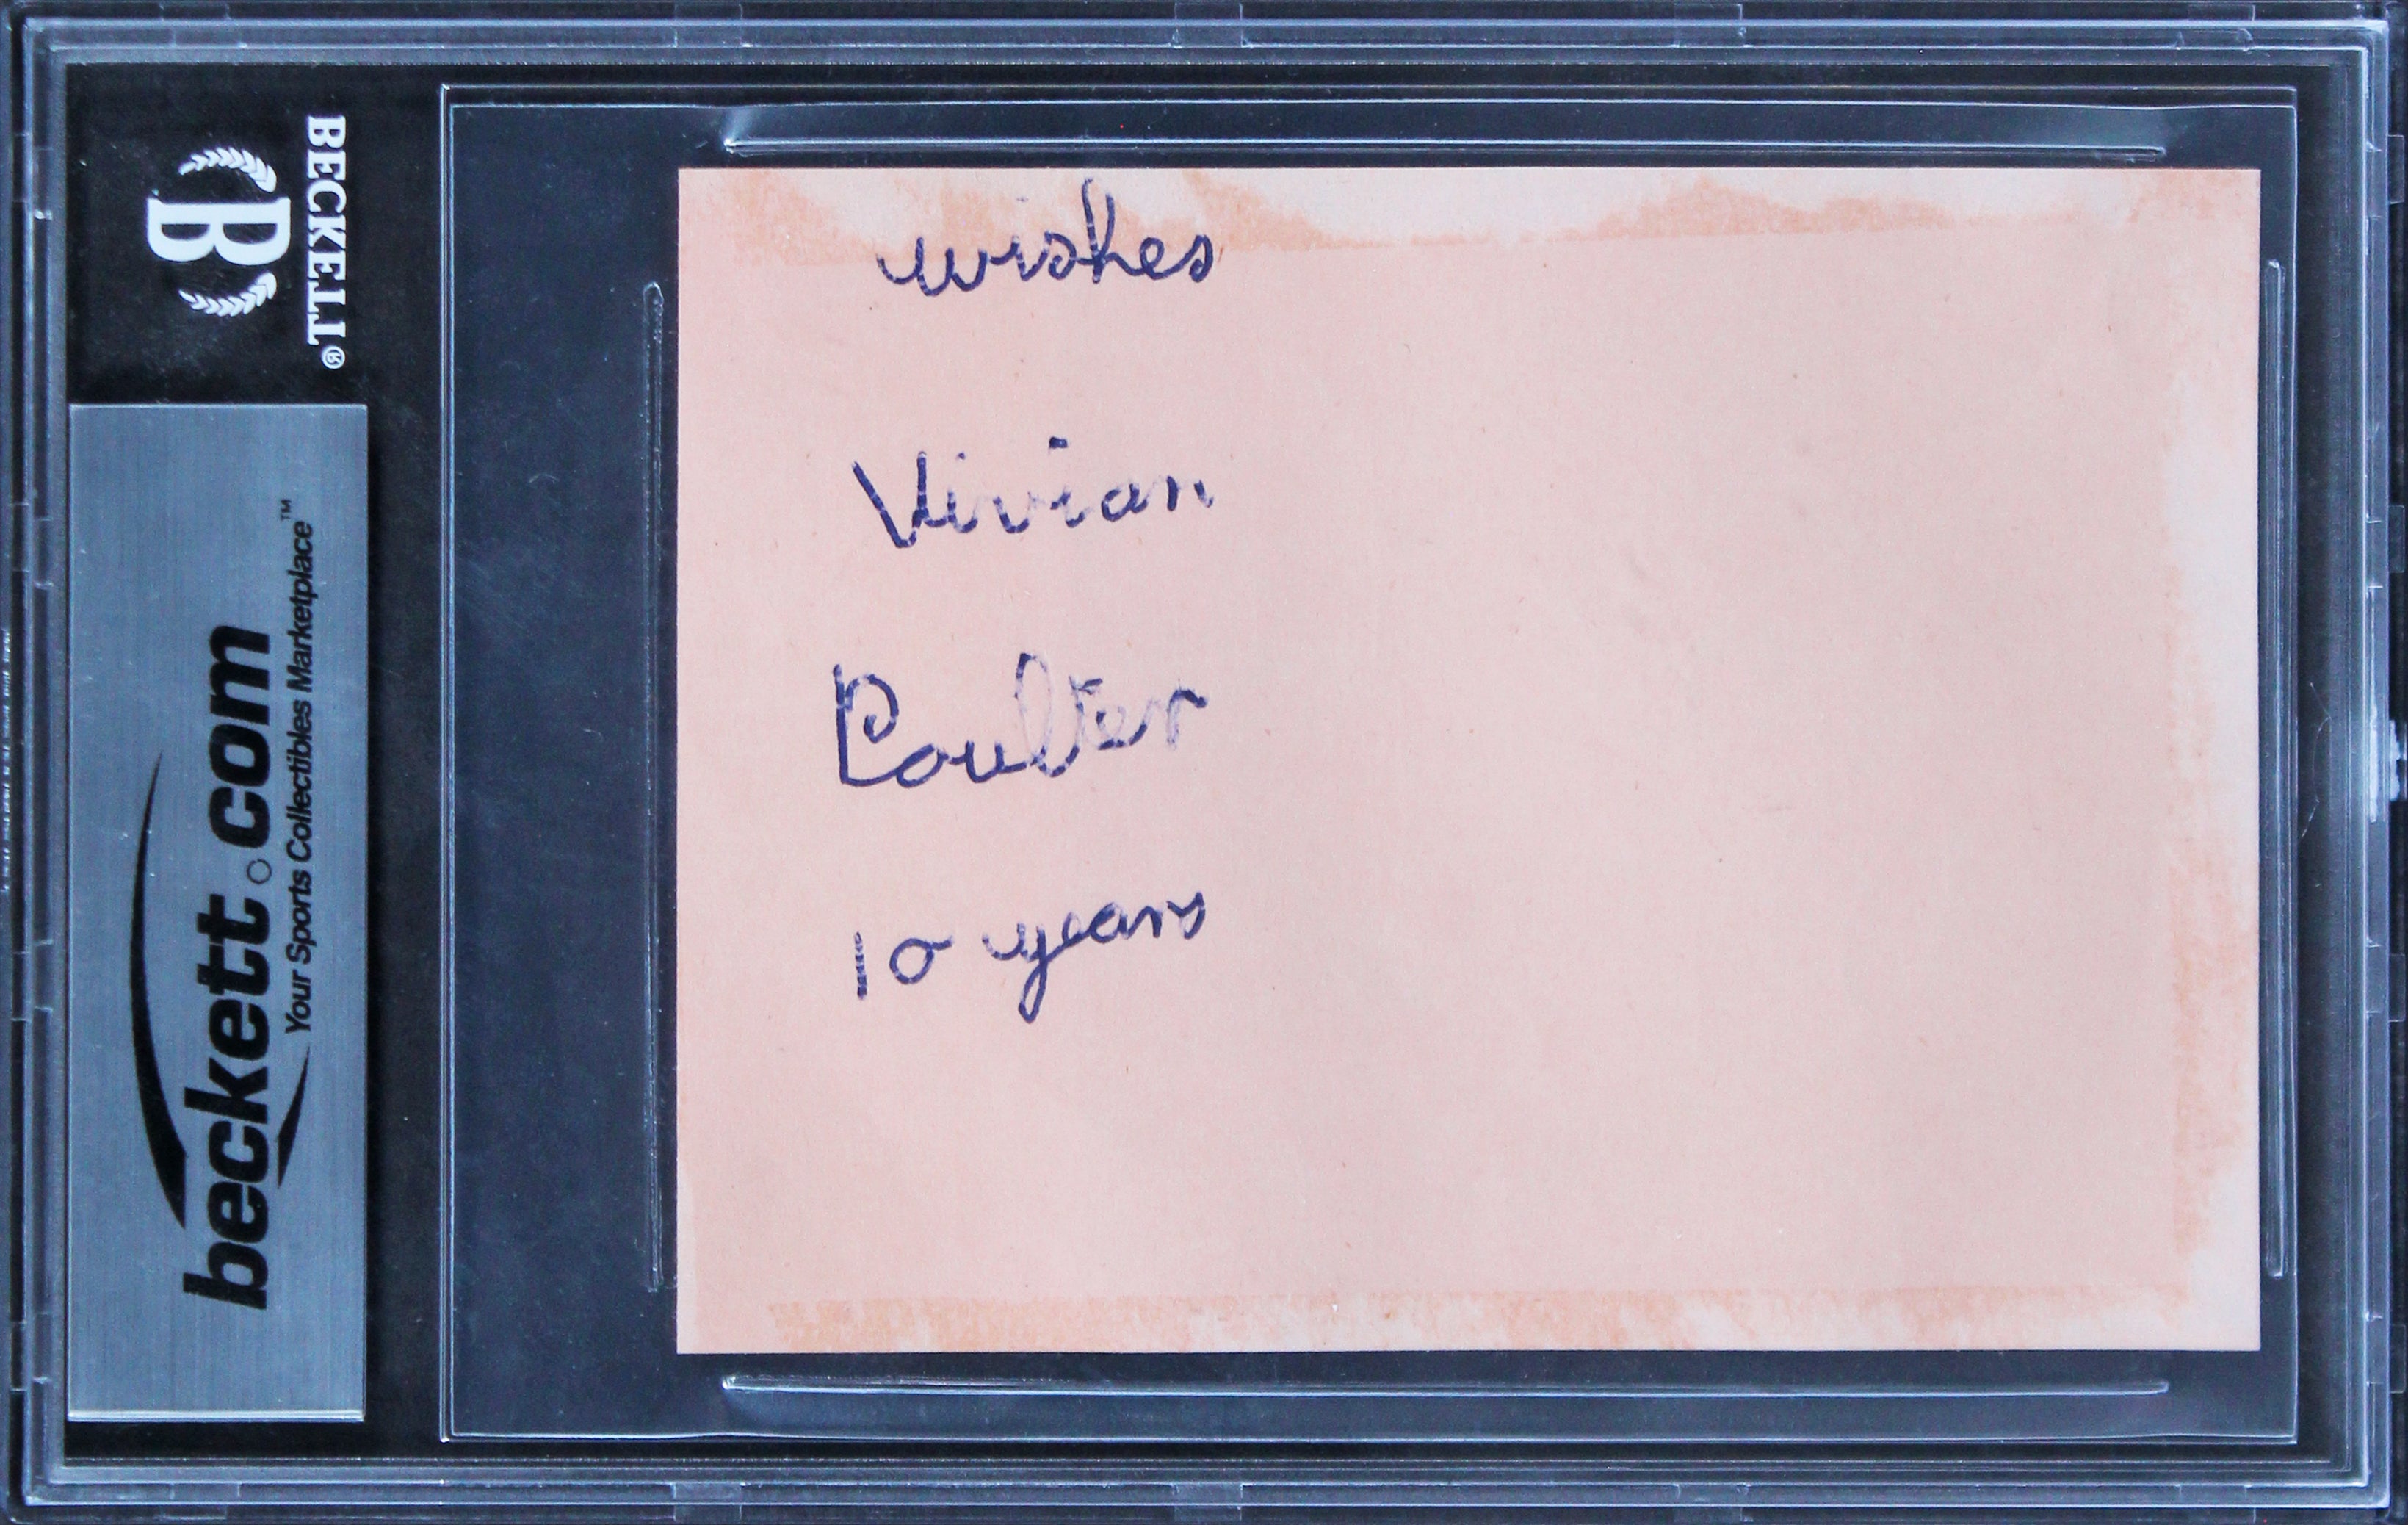 BECKETT®
B
beckett.com
Your Sports Collectibles Marketplace™
wishes
Vivian
Coulter
10 years